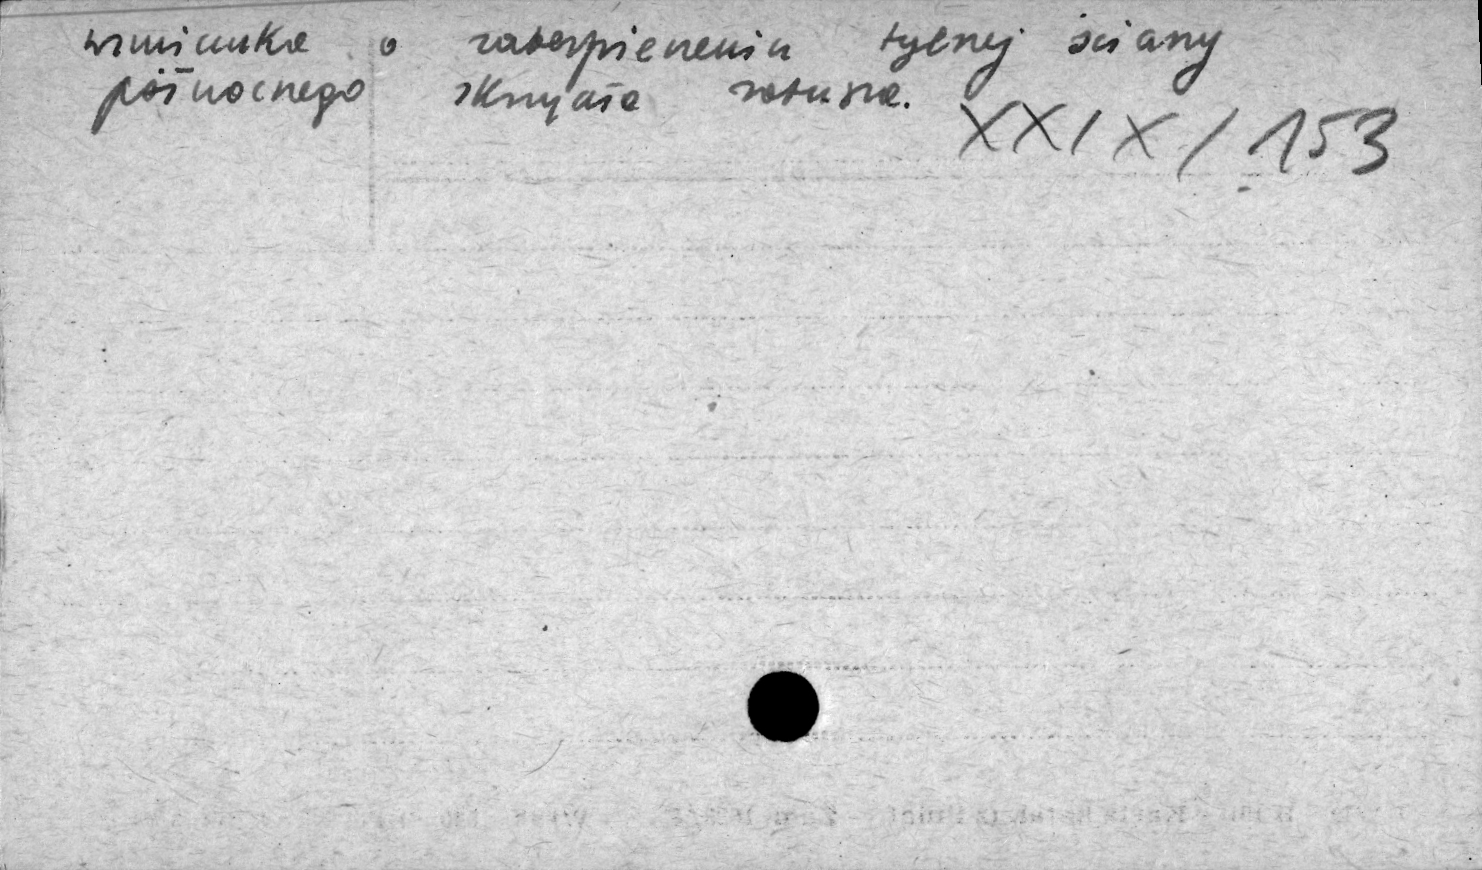 wzmianka o zabezpieczeniu tylnej ściany
północnego skrzydła ratusza.
XXIX/153